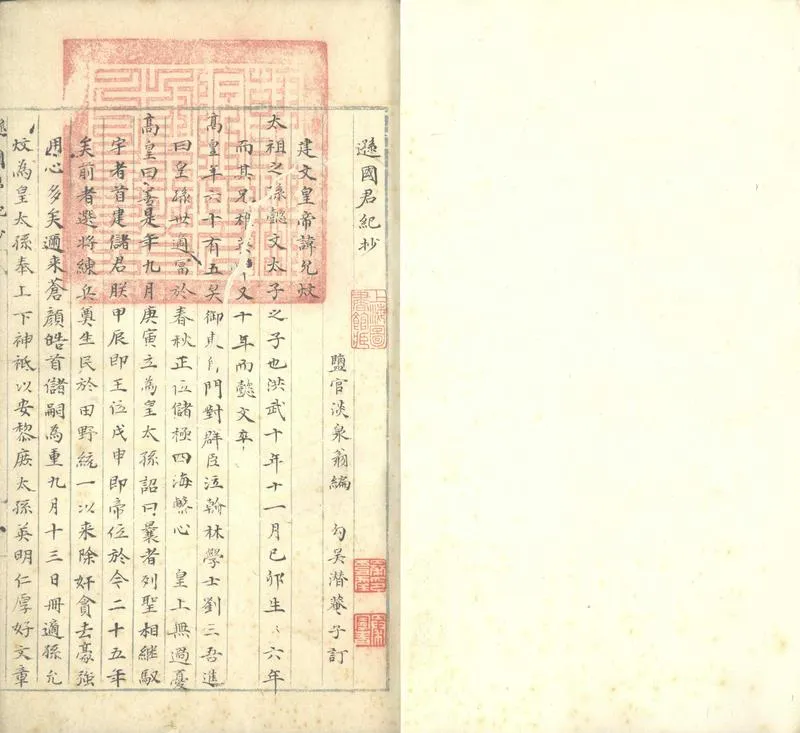 遜國君紀抄
鹽官淡泉翁編 勾吳潛菴子訂
建文皇帝諱允炆
太祖之孫懿文太子之子也洪武十年十一月己卯生〻六年
而其兄雄英 又十年而懿文卒
高皇年六十有五矣御東 門對群臣泣翰林學士劉三吾進
曰皇孫世適富於春秋正位儲極四海繫心 皇上無過憂
高皇曰善是年九月庚寅立為皇太孫詔曰曩者列聖相繼馭
宇者首建儲君朕甲辰即王位戊申即帝位於今二十五年
矣前者選將練兵奠生民於田野統一以來除奸貪去豪強
用心多矣邇來蒼顏皓首儲嗣為重九月十三日冊適孫允
炆為皇太孫奉上下神祗以安黎庶太孫英明仁厚好文章
上海圖書館藏